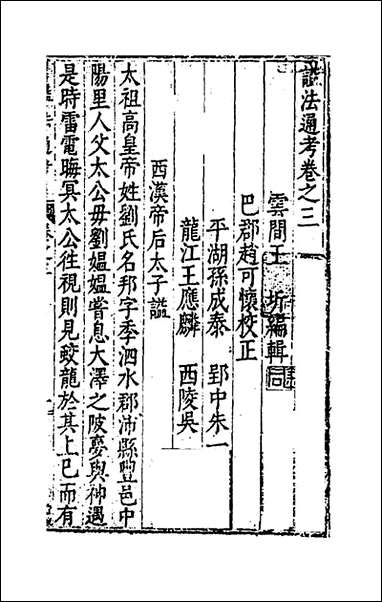 諡法通考卷之三
雲間王 圻編輯
巴郡趙可懷校正
平湖孫成泰 郢中朱一
龍江王應麟 西陵吳
西漢帝后太子諡
太祖高皇帝姓劉氏名邦字季泗水郡沛縣豐邑中
陽里人父太公毋劉媼媼嘗息大澤之陂夢與神遇
是時雷電晦冥太公往視則見蛟龍於其上已而有